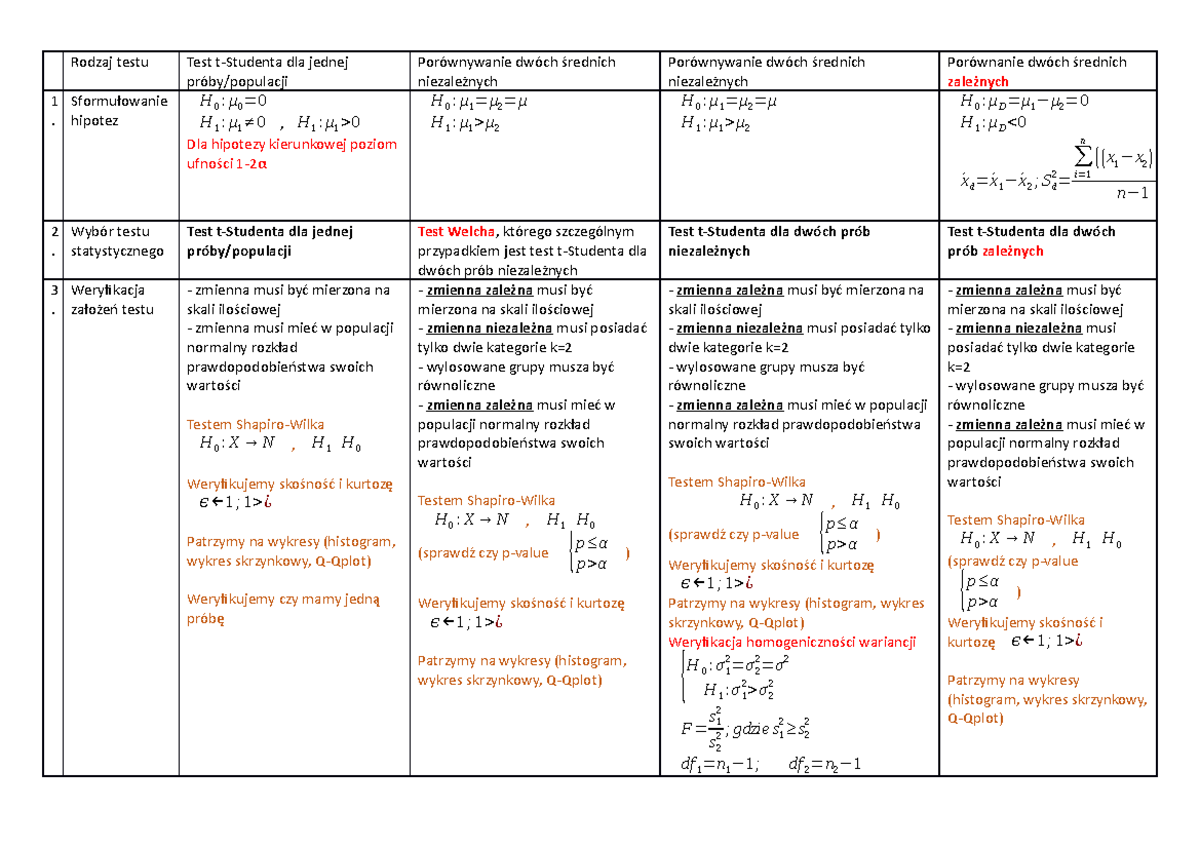 Rodzaj testu
Test t-Studenta dla jednej
próby/populacji
Porównywanie dwóch średnich
niezależnych
Porównywanie dwóch średnich
niezależnych
Porównanie dwóch średnich
zależnych
1
.
Sformułowanie
hipotez
H₀: μ₀=0
H₁: μ₁≠0 , H₁: μ₁>0
Dla hipotezy kierunkowej poziom
ufności 1-2α
H₀: μ₁=μ₂=μ
H₁: μ₁>μ₂
H₀: μ₁=μ₂=μ
H₁: μ₁>μ₂
H₀: μ_D=μ₁−μ₂=0
H₁: μ_D<0
x́_d=x́₁−x́₂; S_d²=∑_{i=1}^{n}{(x₁−x₂)/(n−1)
2
.
Wybór testu
statystycznego
Test t-Studenta dla jednej
próby/populacji
Test Welcha, którego szczególnym
przypadkiem jest test t-Studenta dla
dwóch prób niezależnych
Test t-Studenta dla dwóch prób
niezależnych
Test t-Studenta dla dwóch
prób zależnych
3
.
Weryfikacja
założeń testu
- zmienna musi być mierzona na
skali ilościowej
- zmienna musi mieć w populacji
normalny rozkład
prawdopodobieństwa swoich
wartości
Testem Shapiro-Wilka
H₀: X → N , H₁ H₀
Weryfikujemy skośność i kurtozę
ϵ←1; 1>¿
Patrzymy na wykresy (histogram,
wykres skrzynkowy, Q-Qplot)
Weryfikujemy czy mamy jedną
próbę
- zmienna zależna musi być
mierzona na skali ilościowej
- zmienna niezależna musi posiadać
tylko dwie kategorie k=2
- wylosowane grupy musza być
równoliczne
- zmienna zależna musi mieć w
populacji normalny rozkład
prawdopodobieństwa swoich
wartości
Testem Shapiro-Wilka
H₀: X → N , H₁ H₀
(sprawdź czy p-value {p≤α
p>α )
Weryfikujemy skośność i kurtozę
ϵ←1; 1>¿
Patrzymy na wykresy (histogram,
wykres skrzynkowy, Q-Qplot)
- zmienna zależna musi być mierzona na
skali ilościowej
- zmienna niezależna musi posiadać tylko
dwie kategorie k=2
- wylosowane grupy musza być
równoliczne
- zmienna zależna musi mieć w populacji
normalny rozkład prawdopodobieństwa
swoich wartości
Testem Shapiro-Wilka
H₀: X → N , H₁ H₀
(sprawdź czy p-value {p≤α
p>α )
Weryfikujemy skośność i kurtozę
ϵ←1; 1>¿
Patrzymy na wykresy (histogram, wykres
skrzynkowy, Q-Qplot)
Weryfikacja homogeniczności wariancji
{H₀: σ₁²=σ₂²=σ²
H₁: σ₁²>σ₂²
F=s₁²/s₂²; gdzie s₁²≥s₂²
df₁=n₁−1; df₂=n₂−1
- zmienna zależna musi być
mierzona na skali ilościowej
- zmienna niezależna musi
posiadać tylko dwie kategorie
k=2
- wylosowane grupy musza być
równoliczne
- zmienna zależna musi mieć w
populacji normalny rozkład
prawdopodobieństwa swoich
wartości
Testem Shapiro-Wilka
H₀: X → N , H₁ H₀
(sprawdź czy p-value
{p≤α
p>α )
Weryfikujemy skośność i
kurtozę ϵ←1; 1>¿
Patrzymy na wykresy
(histogram, wykres skrzynkowy,
Q-Qplot)